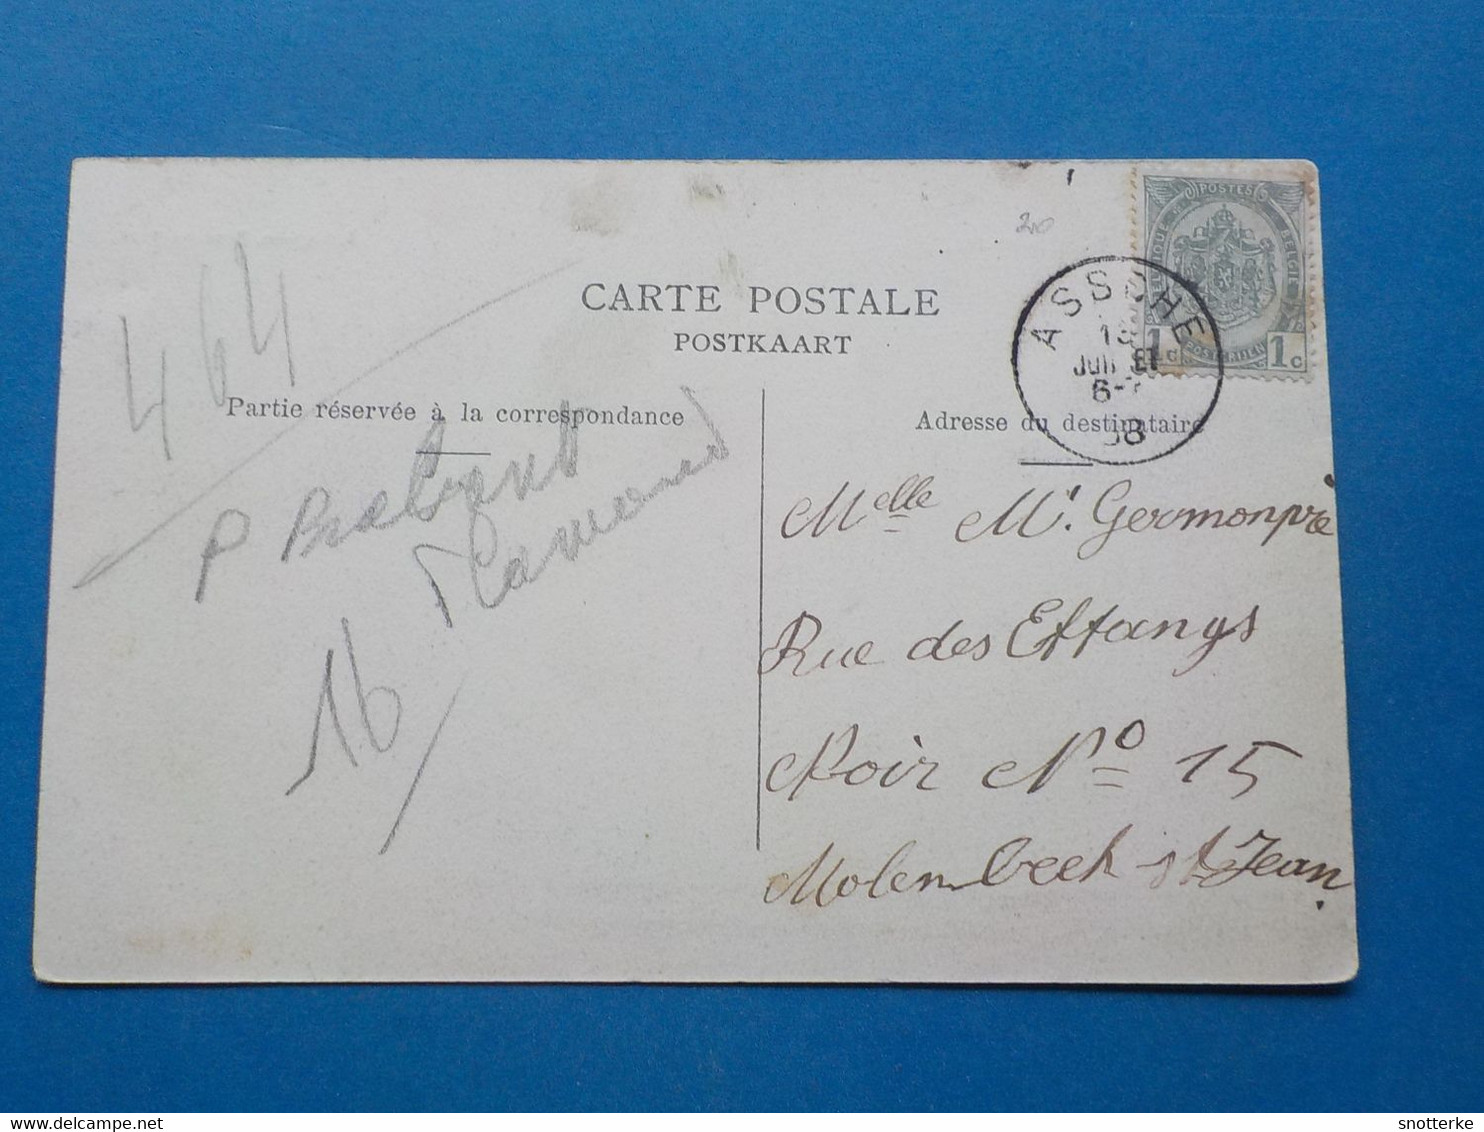 20
POSTES
BELGIQUE BELGIE
POSTERIJEN
1c 1c
ASSCHE
6-7
08
CARTE POSTALE
POSTKAART
464
Partie réservée à la correspondance
Adresse du destinataire
P Brabant
16
Melle M. Germonpré
Rue des Ettangs
Noir No 15
Molenbeek st Jean
snotterke